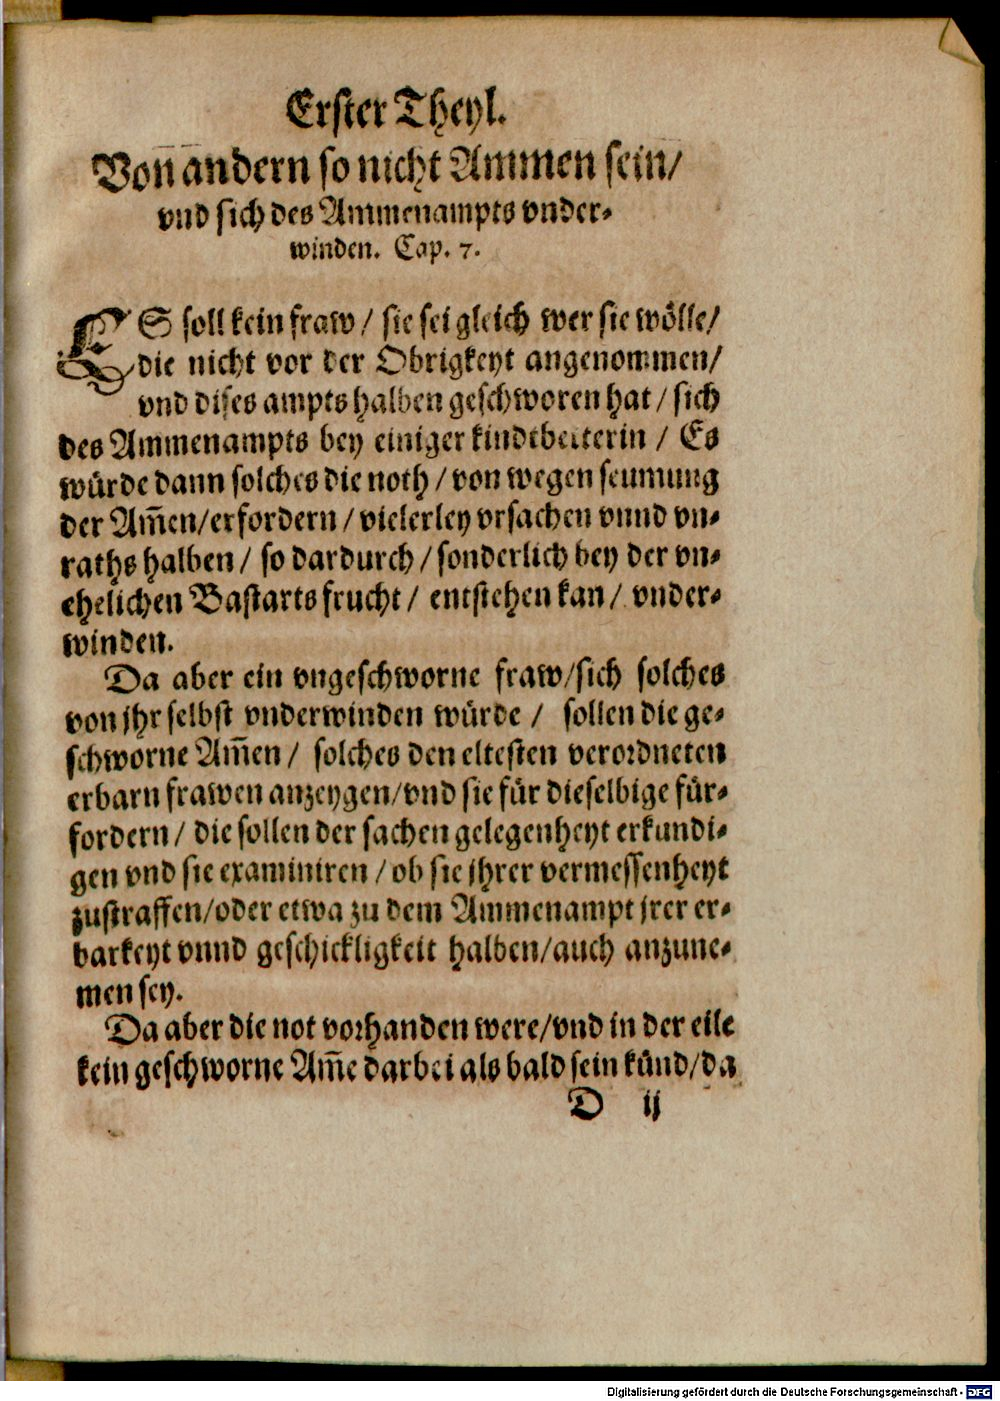 Erster Theyl.
Von andern so nicht Ammen sein/
vnd sich des Ammenampts vnder-
winden. Cap. 7.
ES soll kein fraw / sie sei gleich wer sie wölle/
die nicht vor der Obrigkeyt angenommen/
vnd dises ampts halben geschworen hat / sich
des Ammenampts bey einiger kindtbetterin / Es
würde dann solches die noth / von wegen seumung
der Am̄en/erfordern / vielerley vrsachen vnnd vn-
raths halben / so dardurch / sonderlich bey der vn-
ehelichen Bastarts frucht / entstehen kan / vnder-
winden.
Da aber ein vngeschworne fraw/sich solches
von jhr selbst vnderwinden würde / sollen die ge-
schworne Am̄en / solches den eltesten verordneten
erbarn frawen anzeygen/vnd sie für dieselbige für-
fordern / die sollen der sachen gelegenheyt erkundi-
gen vnd sie examiniren / ob sie jhrer vermessenheyt
zustraffen/oder etwa zu dem Ammenampt jrer er-
barkeyt vnnd geschickligkeit halben/auch anzune-
men sey.
Da aber die not vorhanden were/vnd in der eile
kein geschworne Am̄e darbei als bald sein künd/da
D ij
Digitalisierung gefördert durch die Deutsche Forschungsgemeinschaft - DFG